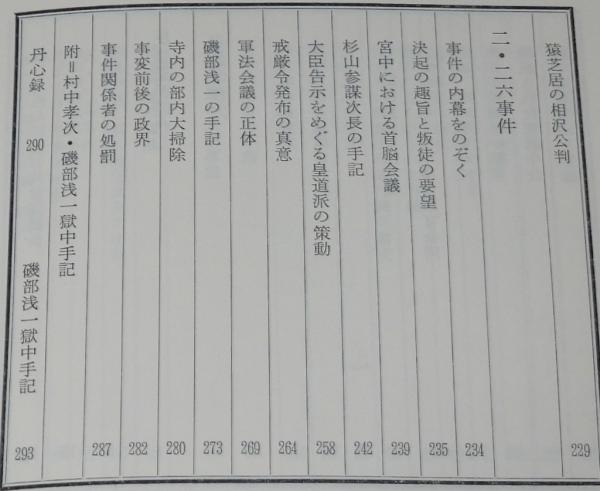 猿芝居の相沢公判 229
二・二六事件
事件の内幕をのぞく 234
決起の趣旨と叛徒の要望 235
宮中における首脳会議 239
杉山参謀次長の手記 242
大臣告示をめぐる皇道派の策動 258
戒厳令発布の真意 264
軍法会議の正体 269
磯部浅一の手記 273
寺内の部内大掃除 280
事変前後の政界 282
事件関係者の処罰 287
附＝村中孝次・磯部浅一獄中手記
丹心録 290 磯部浅一獄中手記 293